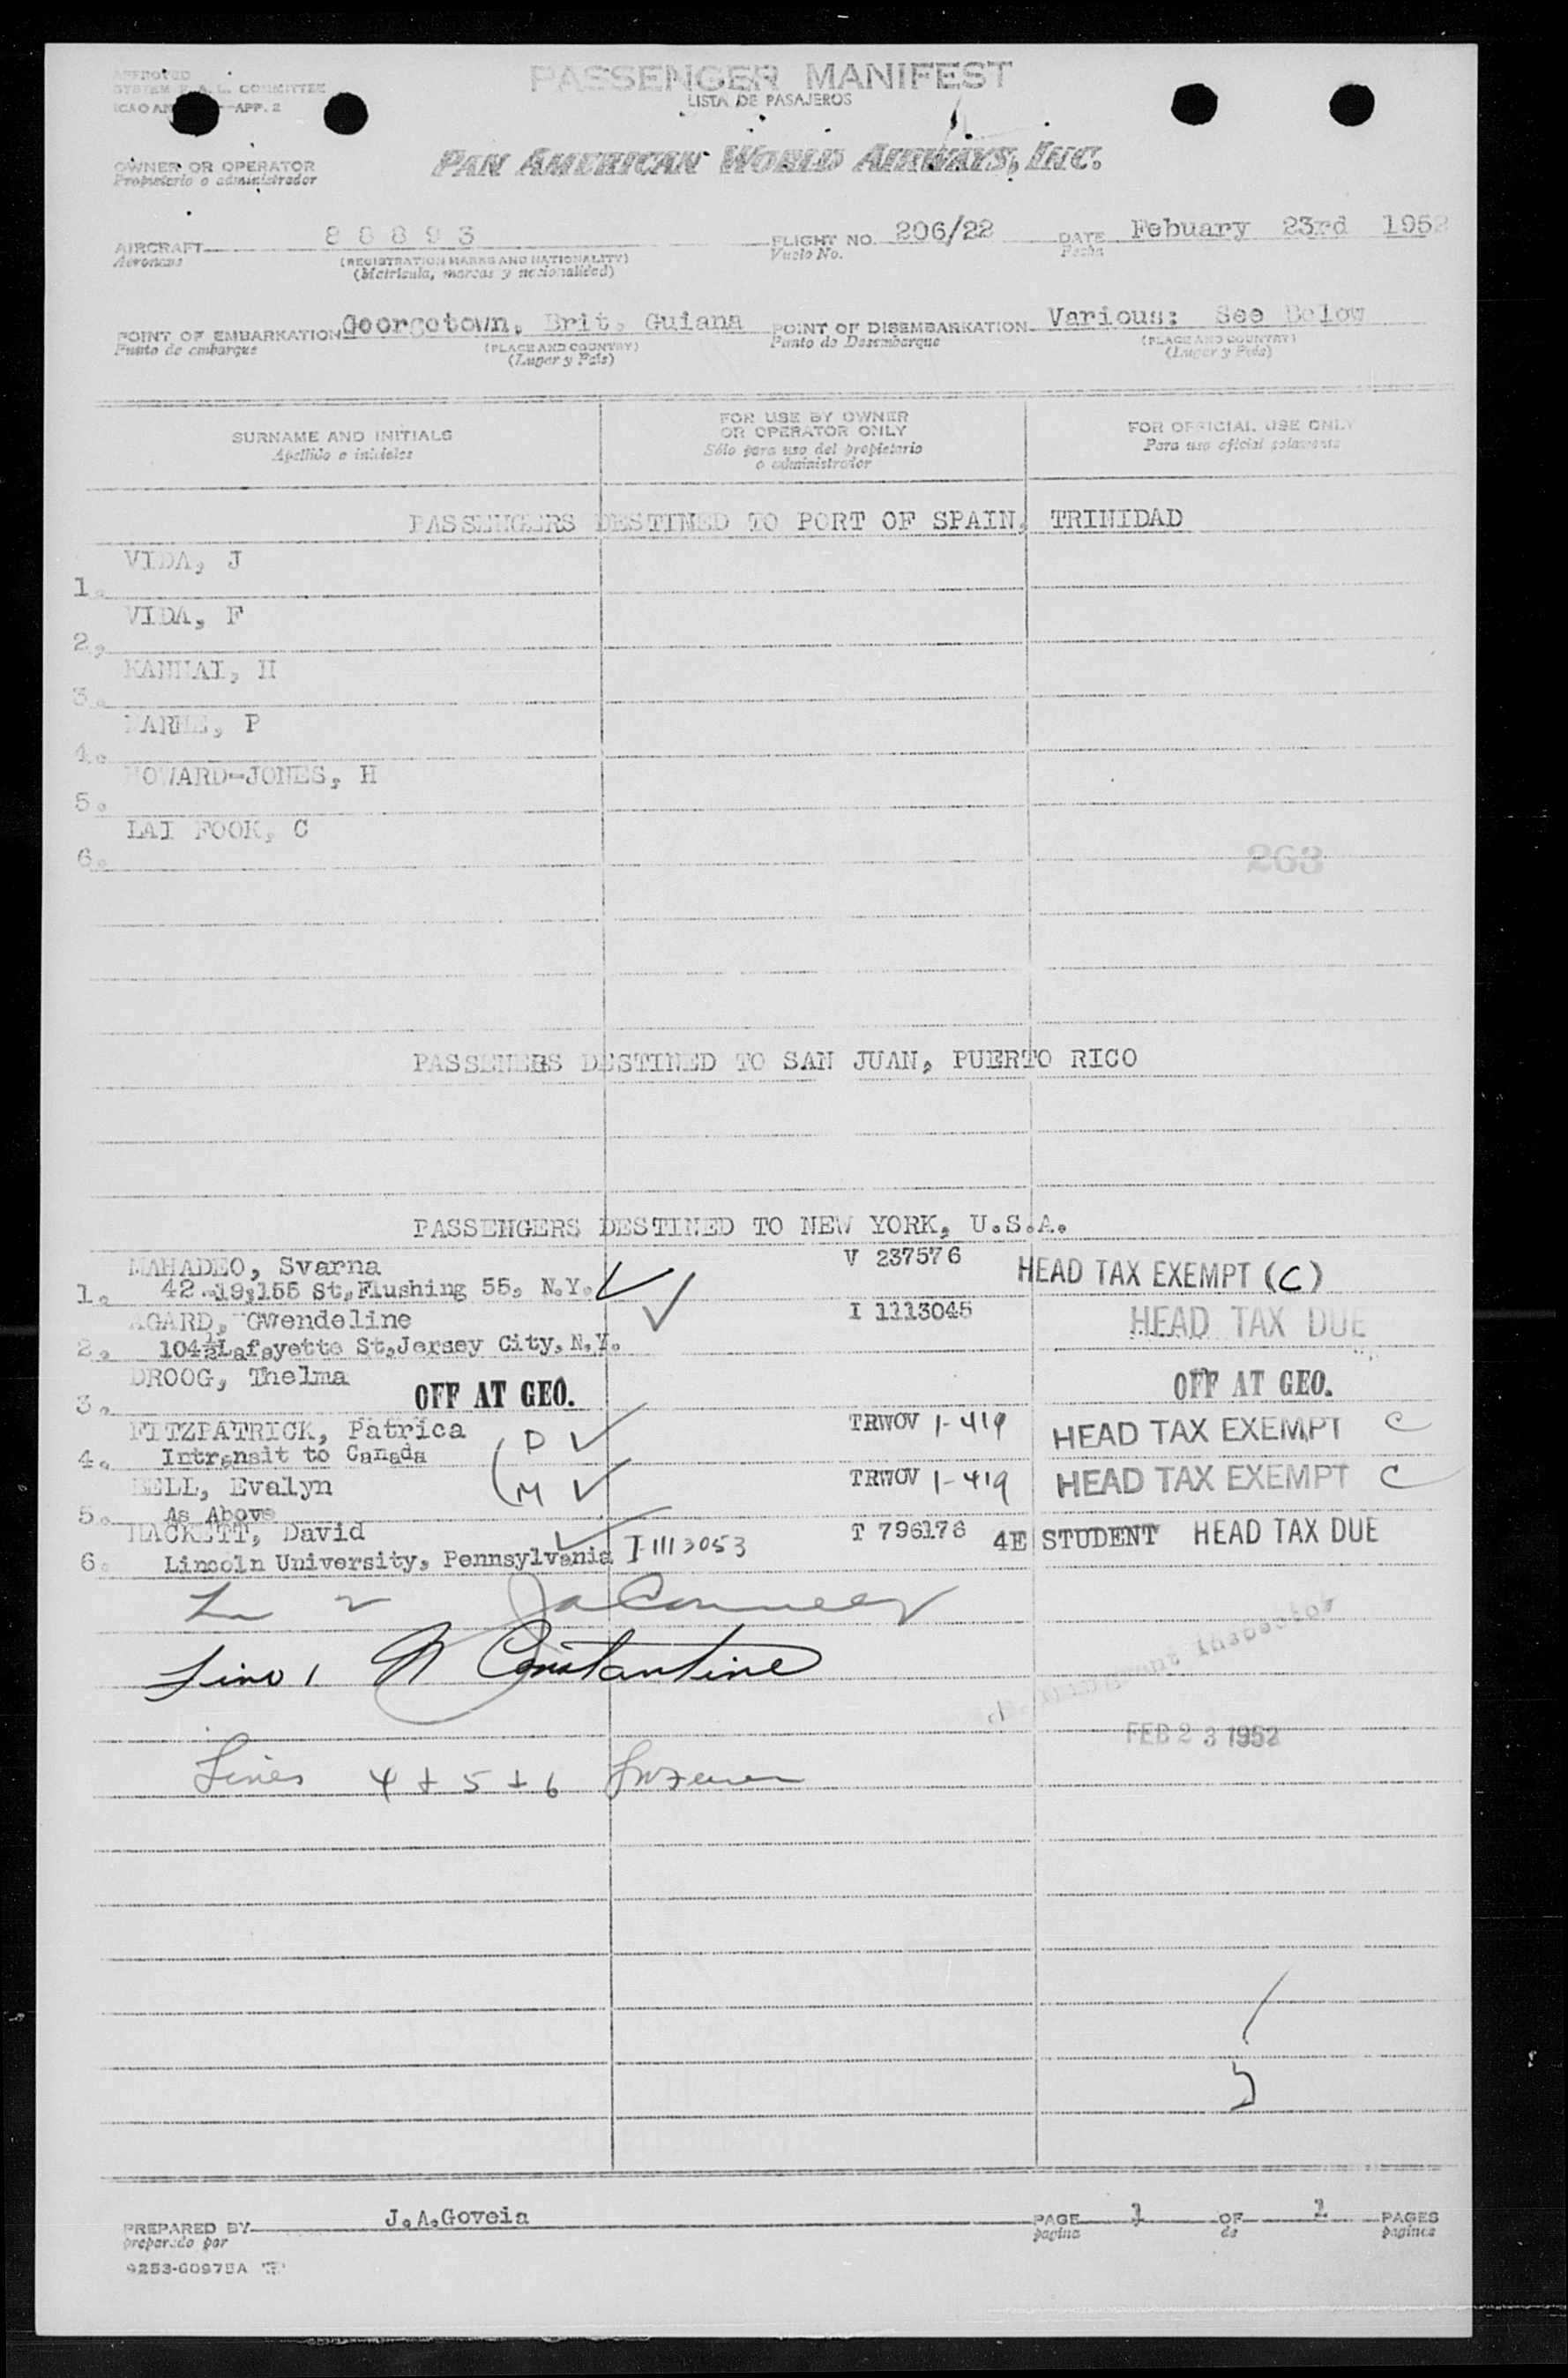 APPROVED
SYSTEM F.A.L. COMMITTEE
ICAO AN APP. 2
PASSENGER MANIFEST
LISTA DE PASAJEROS
OWNER OR OPERATOR
Propietario o administrador
PAN AMERICAN WORLD AIRWAYS, INC.
AIRCRAFT 88893 FLIGHT NO. 206/22 DATE Febuary 23rd 1952
Aeronave (REGISTRATION MARKS AND NATIONALITY) Vuelo No. Fecha
(Matricula, marcas y nacionalidad)
POINT OF EMBARKATION Georgetown, Brit. Guiana POINT OF DISEMBARKATION Various: See Below
Punto de embarque (PLACE AND COUNTRY) Punto de Desembarque (PLACE AND COUNTRY)
(Lugar y País) (Lugar y País)
SURNAME AND INITIALS FOR USE BY OWNER OR OPERATOR ONLY FOR OFFICIAL USE ONLY
Apellido e iniciales Sólo para uso del propietario o administrador Para uso oficial solamente
PASSENGERS DESTINED TO PORT OF SPAIN, TRINIDAD
1. VIDA, J
2. VIDA, F
3. H
4. P
5. HOWARD-JONES, H
6. LAI FOOK, C
263
PASSENERS DESTINED TO SAN JUAN, PUERTO RICO
PASSENGERS DESTINED TO NEW YORK, U.S.A.
MAHADEO, Svarna V 237576 HEAD TAX EXEMPT (C)
1. 42-19;155 St, Flushing 55, N.Y. ✓
AGARD, Gwendeline ✓ I 1113045 HEAD TAX DUE
2. 104½ Lafayette St, Jersey City, N.Y.
3. DROOG, Thelma OFF AT GEO. OFF AT GEO.
FITZPATRICK, Patrica D ✓ TRWOV 1-419 HEAD TAX EXEMPT C
4. Intransit to Canada
BELL, Evalyn M ✓ TRWOV 1-419 HEAD TAX EXEMPT C
5. As Above
HACKETT, David ✓ T 796176 4E STUDENT HEAD TAX DUE
6. Lincoln University, Pennsylvania I-1113053
2
Line 1 N Constantine
Immigrant Inspector
FEB 23 1952
Lines 4 + 5 + 6
PREPARED BY J.A.Goveia PAGE 1 OF 1 PAGES
preparado por pagina de paginas